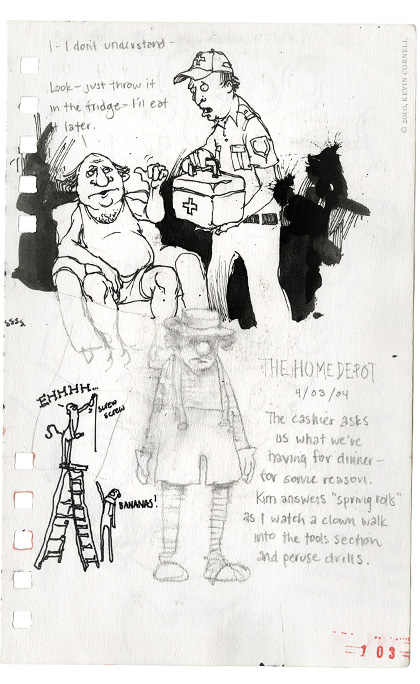 I-I don't understand-
Look- just throw it
in the fridge- I'll eat
it later.
© 2010, KEVIN CORNELL
SSSS
EHHHH...
SCREW
SCREW
BANANAS!
THE HOME DEPOT
9/03/04
The cashier asks
us what we're
having for dinner-
for some reason.
Kim answers "spring rolls"
as I watch a clown walk
into the tools section
and peruse drills.
103